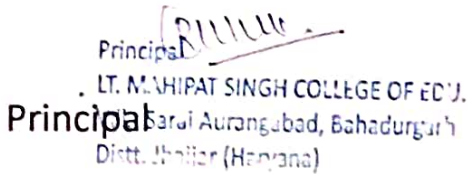 Principal
LT. MAHIPAT SINGH COLLEGE OF EDU.
Principal
Sarai Aurangabad, Bahadurgarh
Distt. Jhajjar (Haryana)